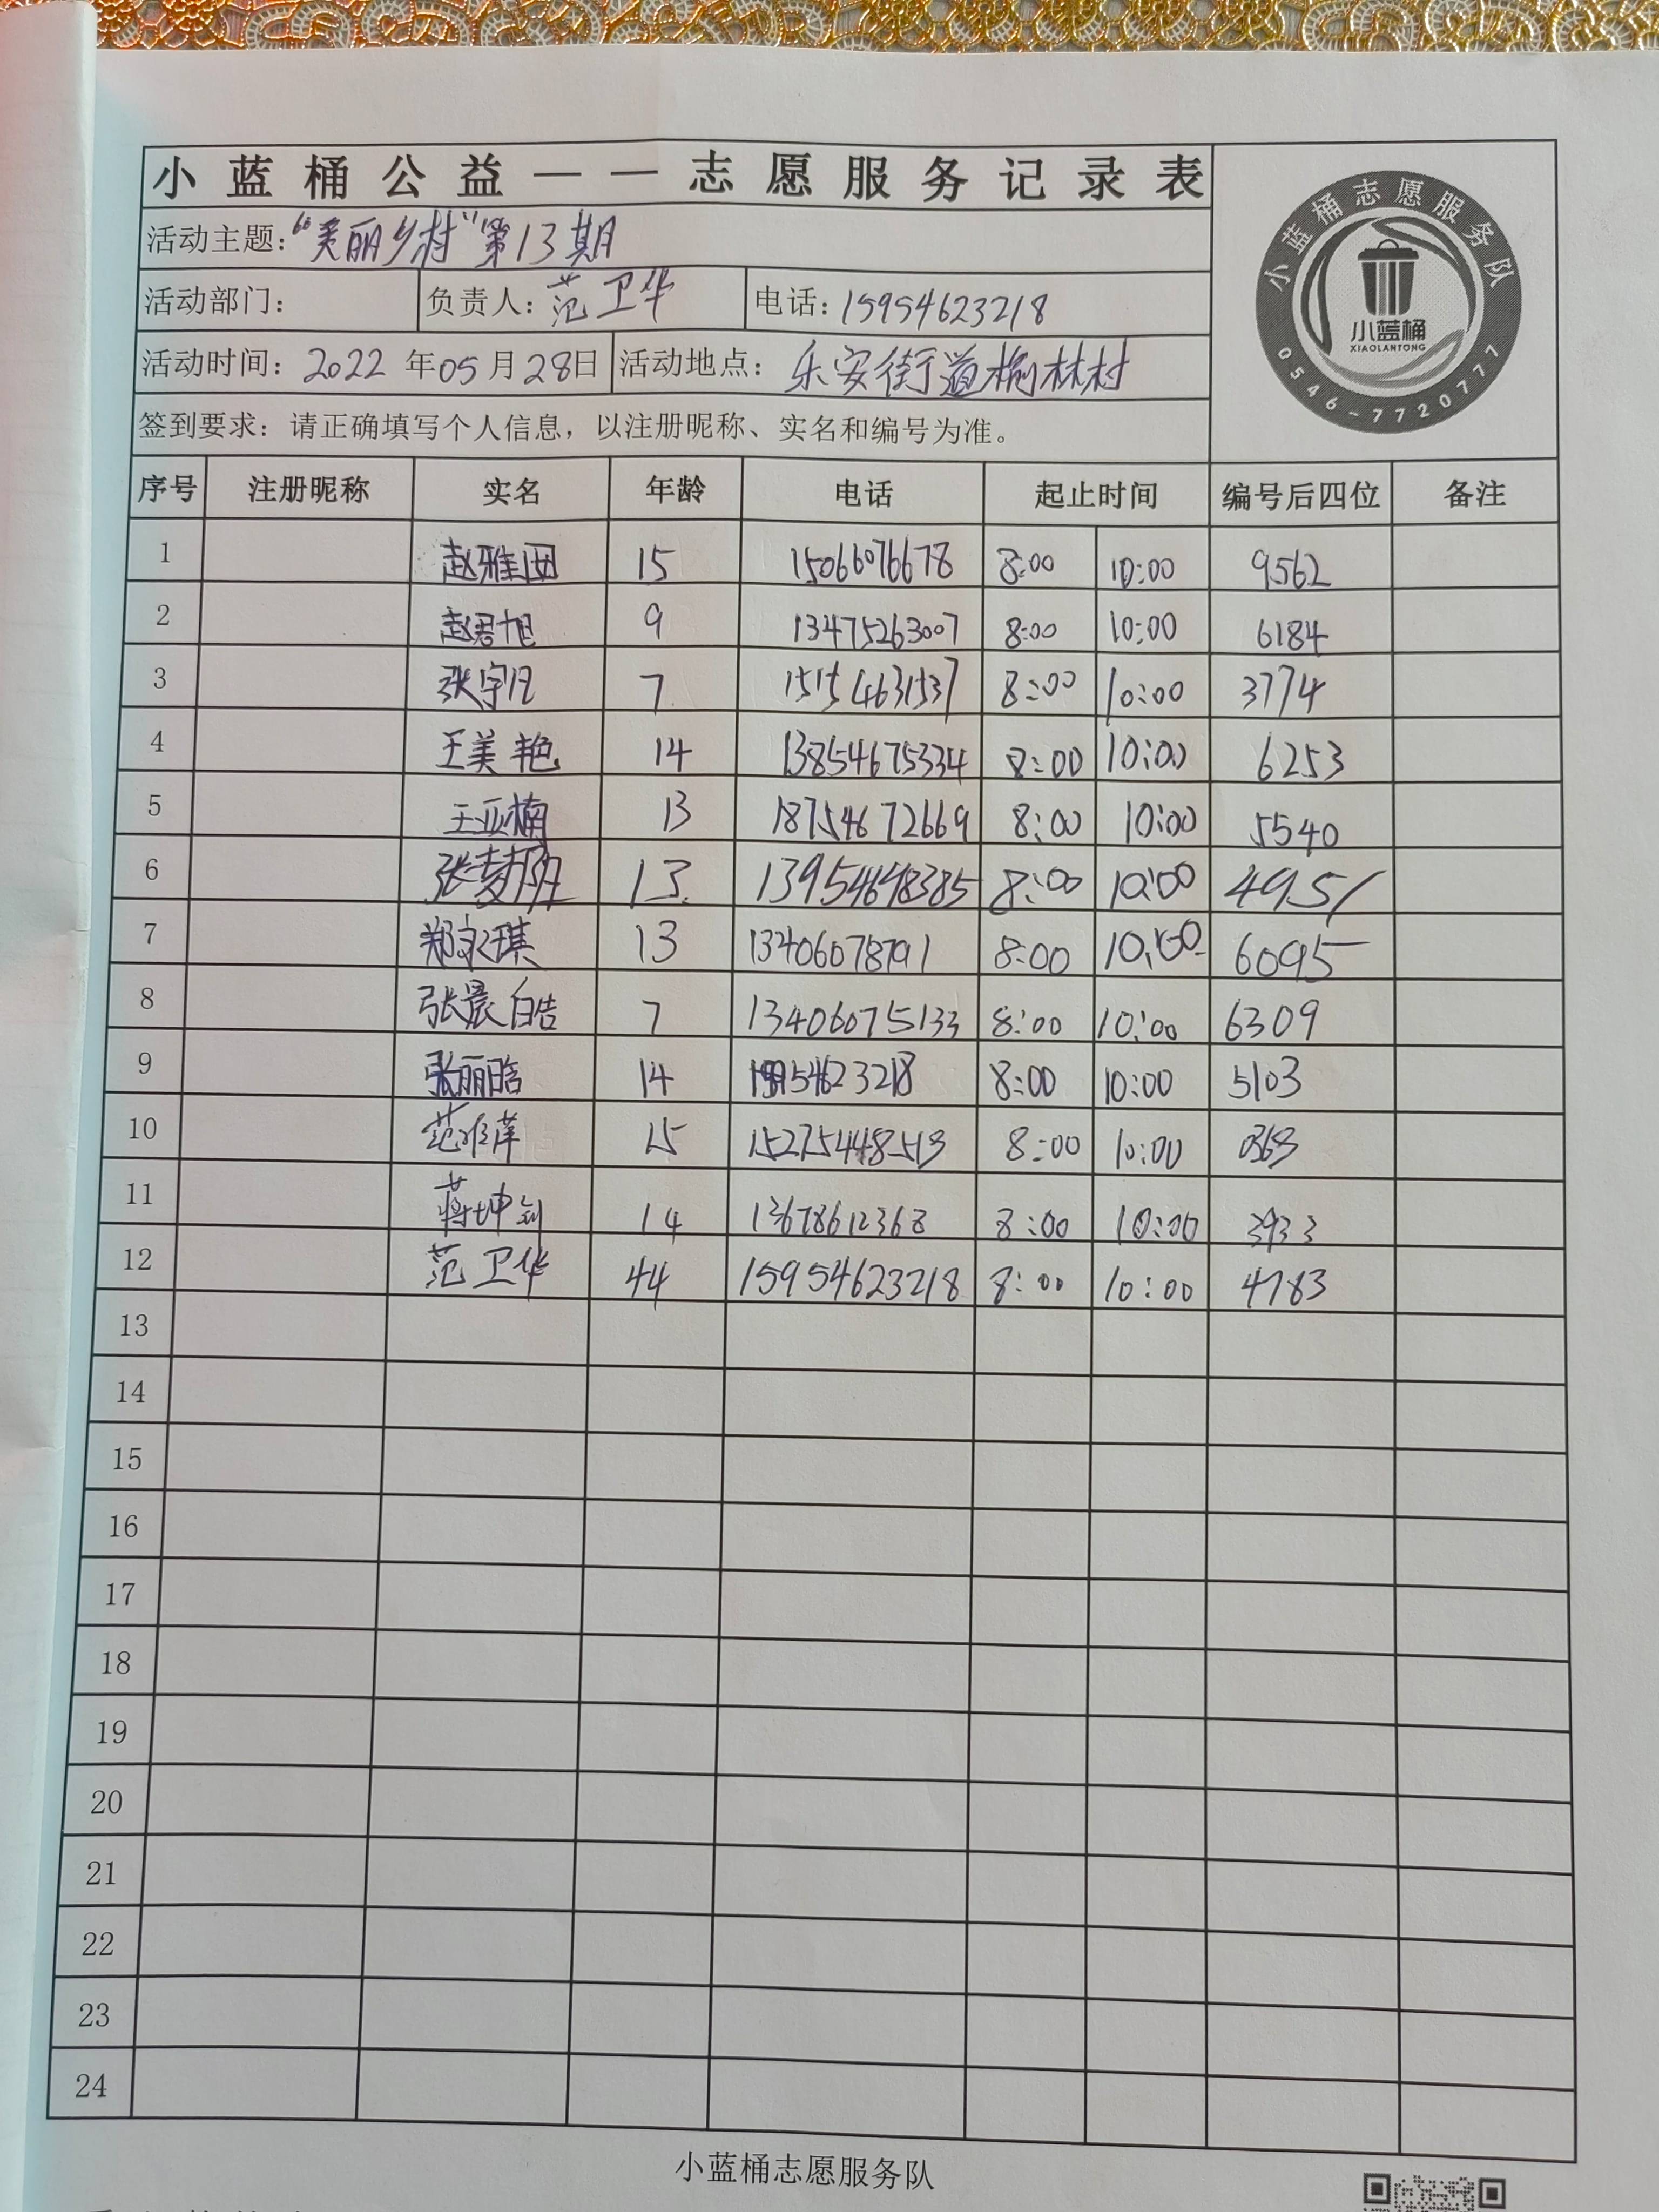 小蓝桶公益——志愿服务记录表
活动主题：“美丽乡村”第13期
活动部门： 负责人：范卫华 电话：15954623218
活动时间：2022年05月28日 活动地点：乐安街道榆林村
签到要求：请正确填写个人信息，以注册昵称、实名和编号为准。
小蓝桶志愿服务队
小蓝桶
XIAOLANTONG
0546-7720777
序号 注册昵称 实名 年龄 电话 起止时间 编号后四位 备注
1 赵雅 15 15066076678 8:00 10:00 9562
2 赵君旭 9 13475263007 8:00 10:00 6184
3 张宇凡 7 15154631537 8:00 10:00 3774
4 王美艳 14 13854675334 8:00 10:00 6253
5 王亚楠 13 18754672669 8:00 10:00 5540
6 张 13 13954698385 8:00 10:00 4951
7 郑家琪 13 8:00 10:00 6095
8 张晨皓 7 13406075133 8:00 10:00 6309
9 张丽晗 14 8:00 10:00 5103
10 范 15 8:00 10:00
11 蒋坤钊 14 13678612368 8:00 10:00 3933
12 范卫华 44 15954623218 8:00 10:00 4783
13
14
15
16
17
18
19
20
21
22
23
24
小蓝桶志愿服务队